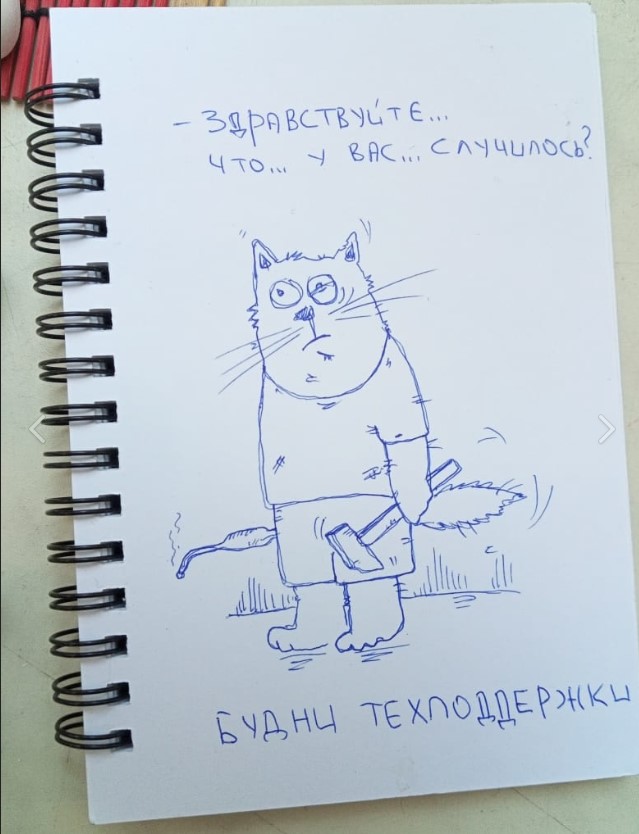 - ЗДРАВСТВУЙТЕ...
ЧТО... У ВАС... СЛУЧИЛОСЬ?
БУДНИ ТЕХПОДДЕРЖКИ